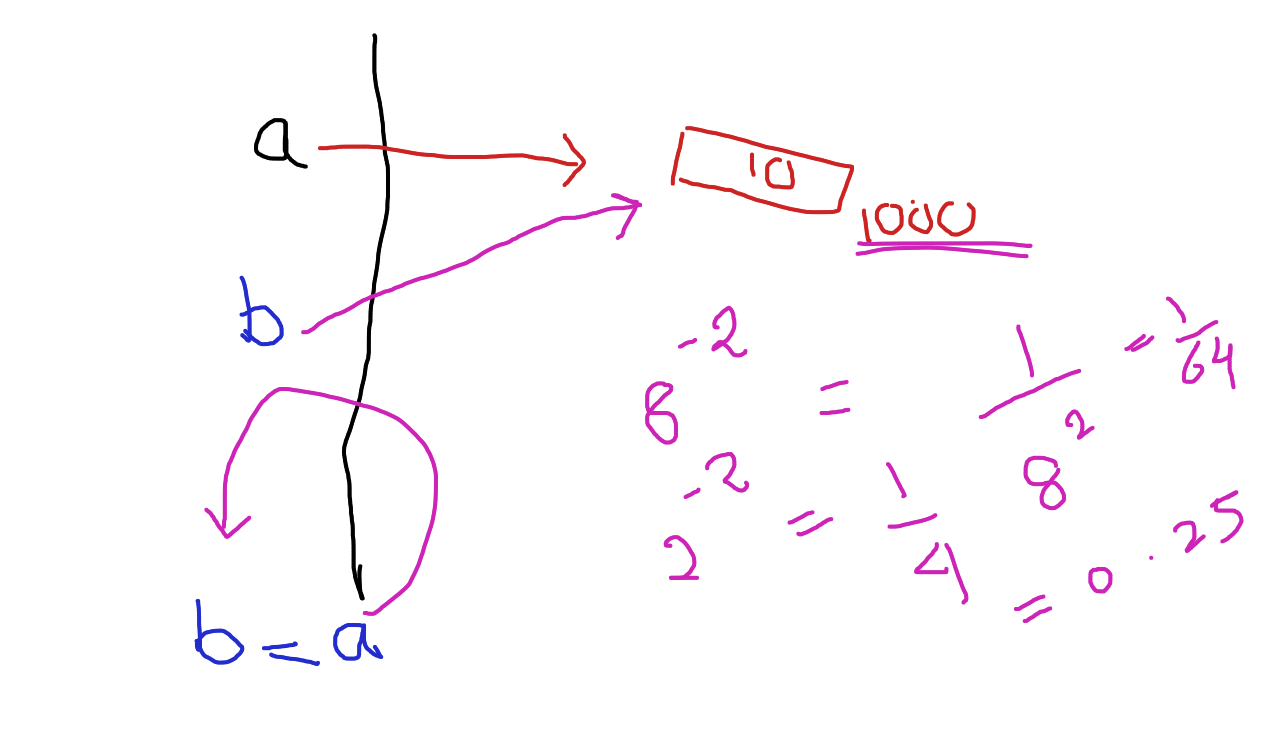 a
10
1000
b
8^-2 = 1/8^2 = 1/64
2^-2 = 1/4 = 0.25
b = a